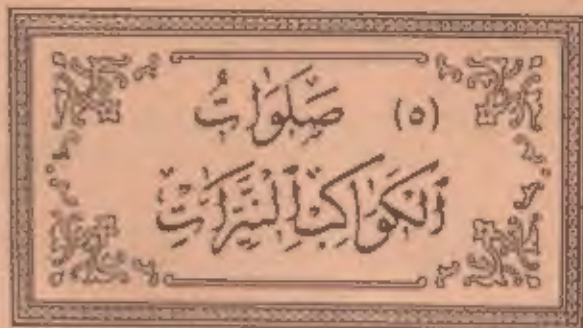 (٥) صَلَوَاتُ
ٱلْكَوَاكِبِ ٱلنَّيِّرَاتِ